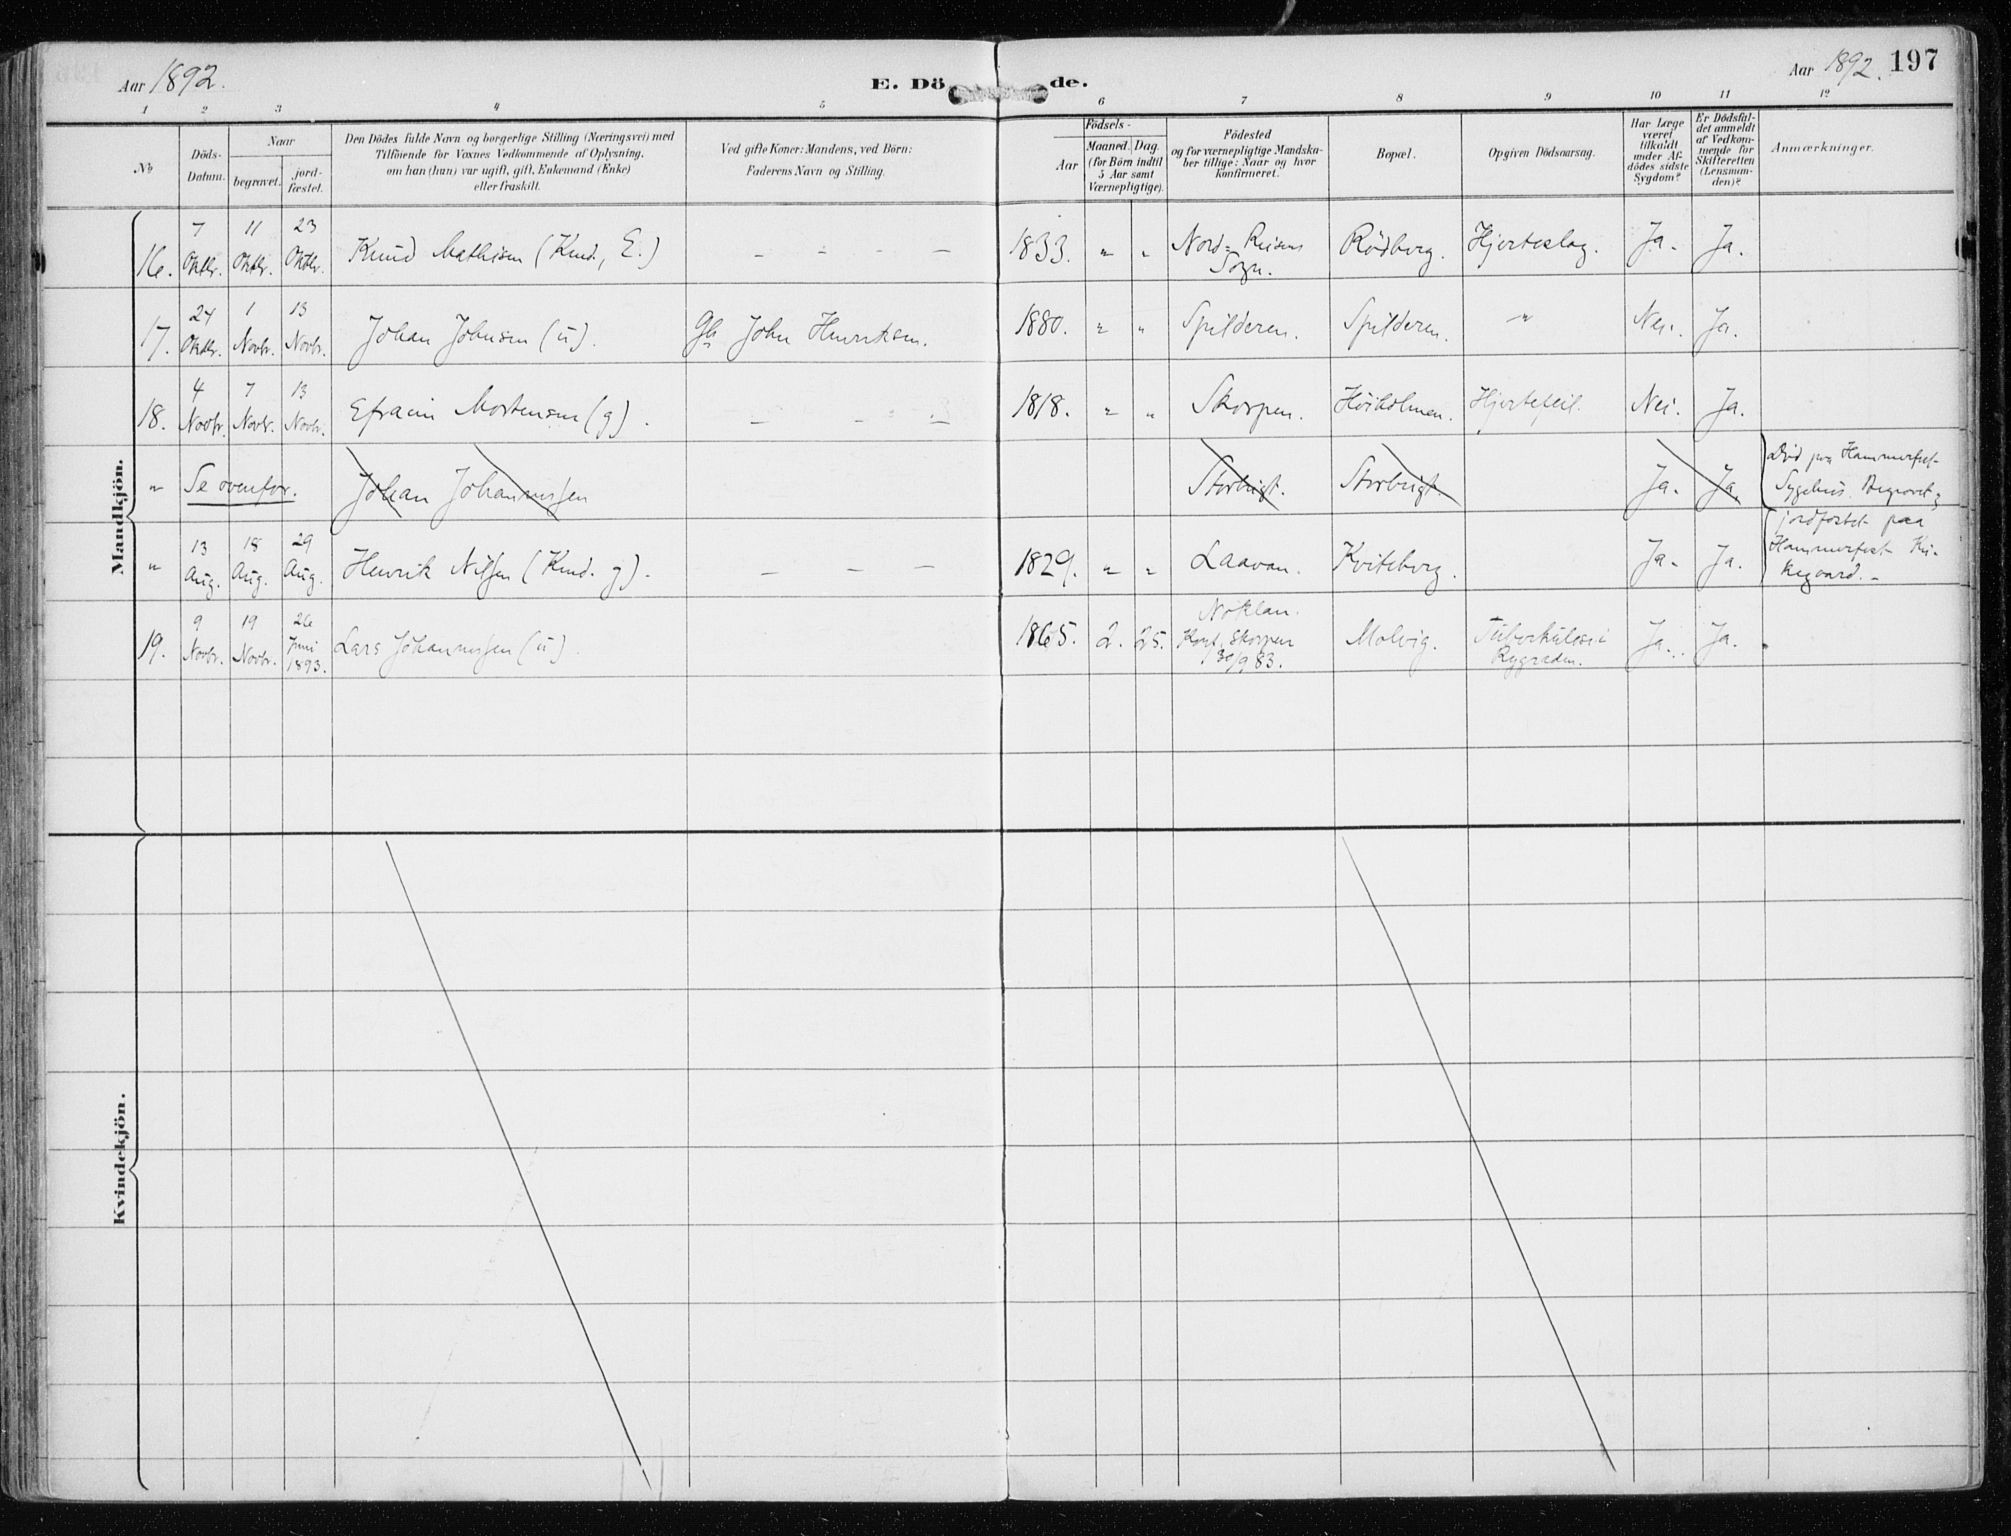 Aar 1892.
E. Dö de.
Aar 1892. 197
1 2 3 4 5 6 7 8 9 10 11 12
No
Döds-
Datum.
Naar
begravet.
jord-
fæstet.
Den Dödes fulde Navn og borgerlige Stilling (Næringsvei) med
Tilföiende for Voxnes Vedkommende af Oplysning,
om han (hun) var ugift, gift, Enkemand (Enke)
eller fraskilt.
Ved gifte Koner: Mandens, ved Börn:
Faderens Navn og Stilling.
Födsels-
Aar
Maaned. Dag.
(for Börn indtil
5 Aar samt
Værnepligtige).
Födested
og for værnepligtige Mandska-
ber tillige: Naar og hvor
konfirmeret.
Bopæl.
Opgiven Dödsaarsag.
Har Læge
været
tilkaldt
under Af-
dödes sidste
Sygdom?
Er Dödsfal-
det anmeldt
af Vedkom-
mende for
Skifteretten
(Lensman-
den)?
Anmærkninger.
Mandkjön.
16. 7 Oktbr. 11 Oktbr. 23 Oktbr. Knud Mathisen (Kmd., E.) - - - - 1833. " " Nord-Reisens Sogn. Rödberg. Hjerteslag. Ja. Ja.
17. 24 Oktbr. 1 Novbr. 13 Novbr. Johan Johnsen (u). John Henriksen. 1880. " " Spilderen. Spilderen. " Nei. Ja.
18. 4 Novbr. 7 Novbr. 13 Novbr. Efraim Mortensen (g). - - " - 1818. " " Skorpen. Höiholmen. Hjertefeil. Nei. Ja.
" Se ovenfor. Johan Johannessen Storbugt. Storbugt. Ja. Ja. Död paa Hammerfest
Sygehus. Begravet &
" 13 Aug. 18 Aug. 29 Aug. Henrik Nilssen (Kmd. g). - - - - 1829. " " Laavan. Kviteberg. Ja. Ja. jordfæstet paa
Hammerfest Kir-
kegaard.
19. 9 Novbr. 19 Novbr. 26 Juni 1893. Lars Johannessen (u). 1865. 2. 25. Noklan.
Konf. Skorpen
30/9 83. Molvig. Tuberkulose i
Rygraden. Ja. Ja.
Kvindekjön.